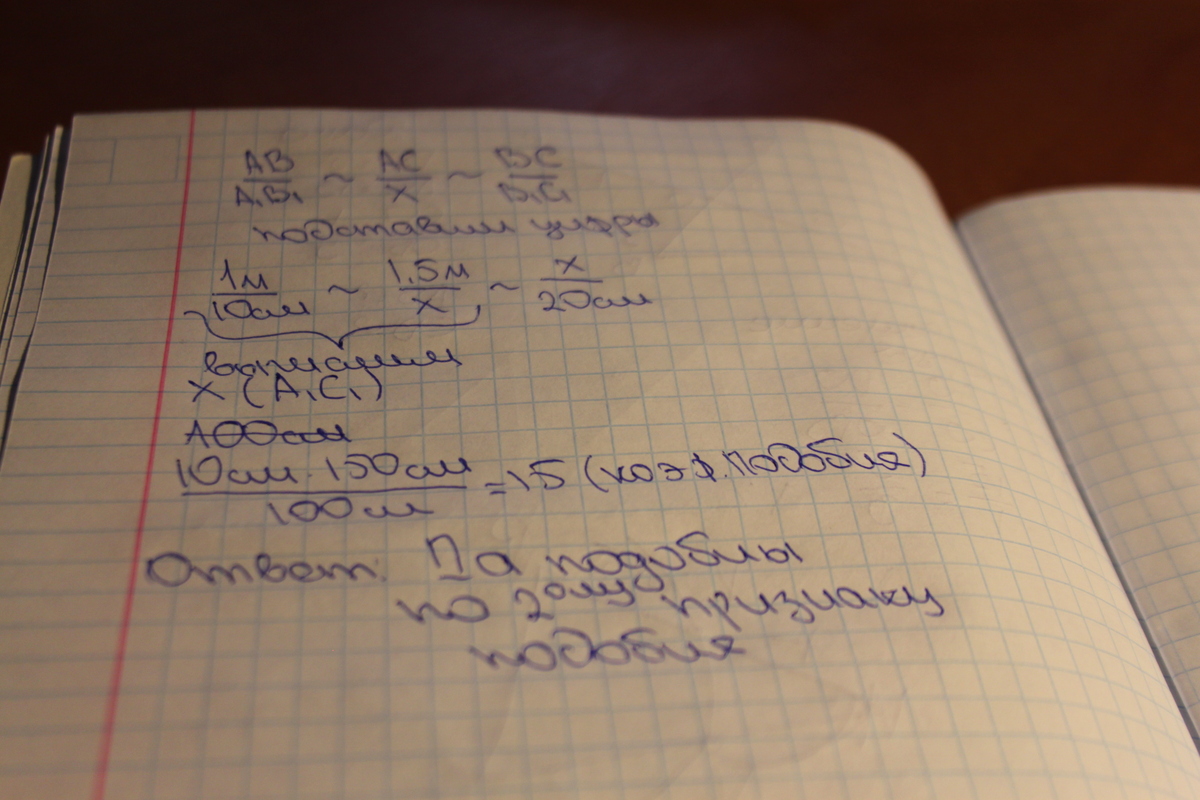 AB/A₁B₁ ~ AC/X ~ BC/B₁C₁
подставим цифры
1м/10см ~ 1.5м/X ~ X/20см
X (A₁C₁)
100см
10см · 150см/100см = 15 (коэф. подобия)
Ответ: Да подобны
по 2ому признаку
подобия